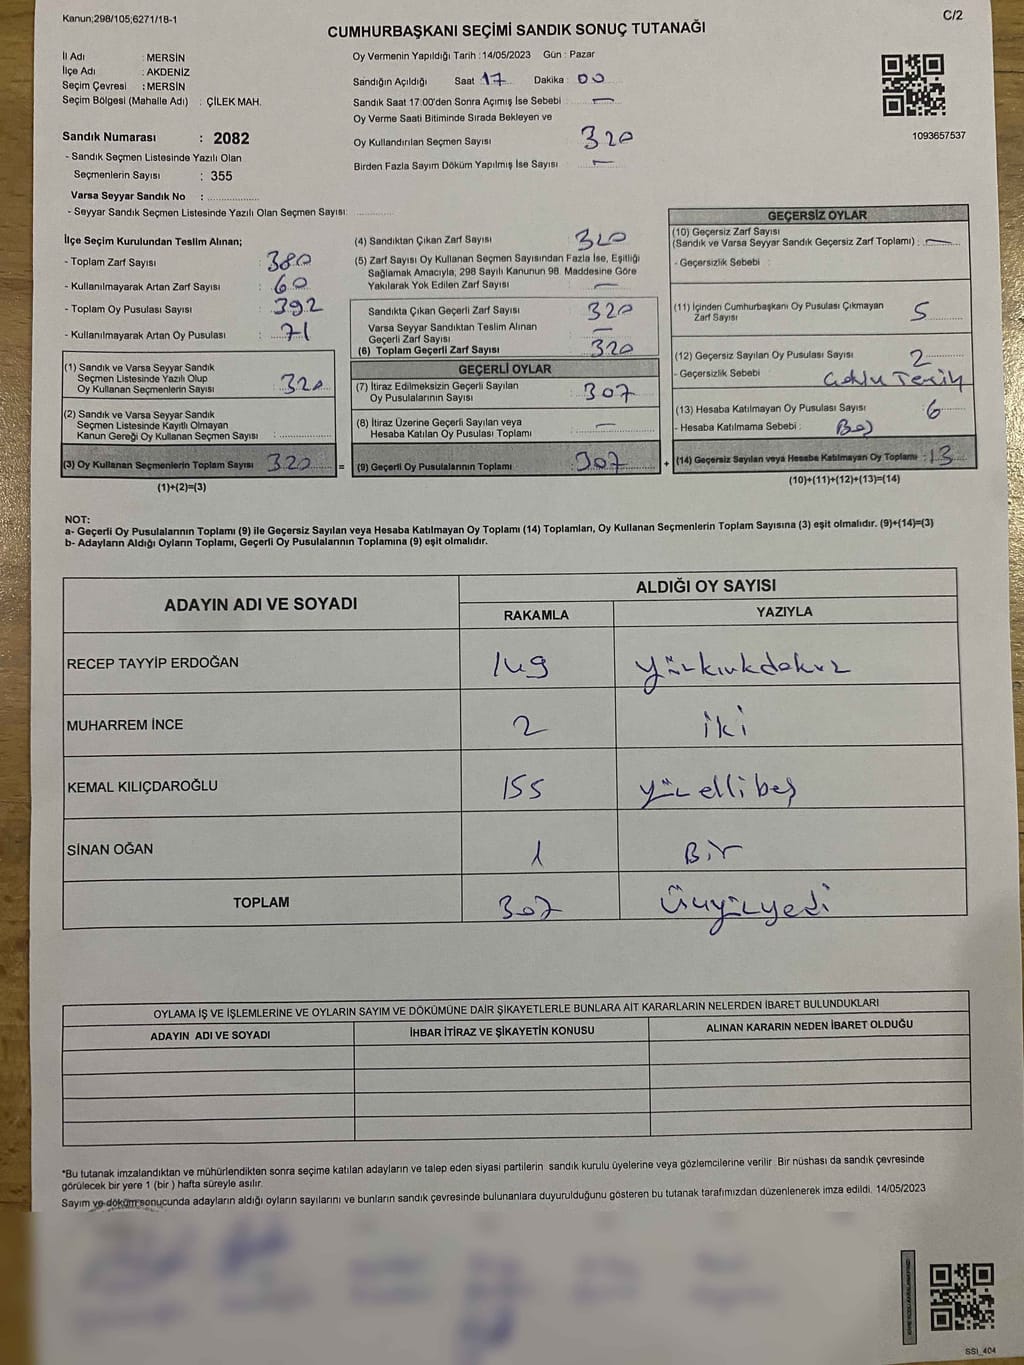 Kanun;298/105;6271/18-1
C/2
CUMHURBAŞKANI SEÇİMİ SANDIK SONUÇ TUTANAĞI
İl Adı : MERSİN
İlçe Adı : AKDENİZ
Seçim Çevresi : MERSİN
Seçim Bölgesi (Mahalle Adı) : ÇİLEK MAH.
Sandık Numarası : 2082
- Sandık Seçmen Listesinde Yazılı Olan
Seçmenlerin Sayısı : 355
Varsa Seyyar Sandık No :
- Seyyar Sandık Seçmen Listesinde Yazılı Olan Seçmen Sayısı:
Oy Vermenin Yapıldığı Tarih : 14/05/2023 Gün : Pazar
Sandığın Açıldığı Saat : 17 Dakika : 00
Sandık Saat 17:00'den Sonra Açımış İse Sebebi : —
Oy Verme Saati Bitiminde Sırada Bekleyen ve
Oy Kullandırılan Seçmen Sayısı : 320
Birden Fazla Sayım Döküm Yapılmış İse Sayısı : —
1093657537
İlçe Seçim Kurulundan Teslim Alınan;
- Toplam Zarf Sayısı : 380
- Kullanılmayarak Artan Zarf Sayısı : 60
- Toplam Oy Pusulası Sayısı : 392
- Kullanılmayarak Artan Oy Pusulası : 71
(1) Sandık ve Varsa Seyyar Sandık
Seçmen Listesinde Yazılı Olup
Oy Kullanan Seçmenlerin Sayısı : 320
(2) Sandık ve Varsa Seyyar Sandık
Seçmen Listesinde Kayıtlı Olmayan
Kanun Gereği Oy Kullanan Seçmen Sayısı :
(3) Oy Kullanan Seçmenlerin Toplam Sayısı : 320
(1)+(2)=(3)
(4) Sandıktan Çıkan Zarf Sayısı : 320
(5) Zarf Sayısı Oy Kullanan Seçmen Sayısından Fazla İse, Eşitliği
Sağlamak Amacıyla, 298 Sayılı Kanunun 98. Maddesine Göre
Yakılarak Yok Edilen Zarf Sayısı : —
Sandıkta Çıkan Geçerli Zarf Sayısı : 320
Varsa Seyyar Sandıktan Teslim Alınan
Geçerli Zarf Sayısı : —
(6) Toplam Geçerli Zarf Sayısı : 320
GEÇERLİ OYLAR
(7) İtiraz Edilmeksizin Geçerli Sayılan
Oy Pusulalarının Sayısı : 307
(8) İtiraz Üzerine Geçerli Sayılan veya
Hesaba Katılan Oy Pusulası Toplamı : —
= (9) Geçerli Oy Pusulalarının Toplamı : 307
GEÇERSİZ OYLAR
(10) Geçersiz Zarf Sayısı
(Sandık ve Varsa Seyyar Sandık Geçersiz Zarf Toplamı) : —
- Geçersizlik Sebebi :
(11) İçinden Cumhurbaşkanı Oy Pusulası Çıkmayan
Zarf Sayısı : 5
(12) Geçersiz Sayılan Oy Pusulası Sayısı : 2
- Geçersizlik Sebebi : Çoklu Tercih
(13) Hesaba Katılmayan Oy Pusulası Sayısı : 6
- Hesaba Katılmama Sebebi : Boş
+ (14) Geçersiz Sayılan veya Hesaba Katılmayan Oy Toplamı : 13
(10)+(11)+(12)+(13)=(14)
NOT:
a- Geçerli Oy Pusulalarının Toplamı (9) ile Geçersiz Sayılan veya Hesaba Katılmayan Oy Toplamı (14) Toplamları, Oy Kullanan Seçmenlerin Toplam Sayısına (3) eşit olmalıdır. (9)+(14)=(3)
b- Adayların Aldığı Oyların Toplamı, Geçerli Oy Pusulalarının Toplamına (9) eşit olmalıdır.
ADAYIN ADI VE SOYADI
ALDIĞI OY SAYISI
RAKAMLA YAZIYLA
RECEP TAYYİP ERDOĞAN 149 yüzkırkdokuz
MUHARREM İNCE 2 iki
KEMAL KILIÇDAROĞLU 155 yüz elli beş
SİNAN OĞAN 1 Bir
TOPLAM 307 Üçyüzyedi
OYLAMA İŞ VE İŞLEMLERİNE VE OYLARIN SAYIM VE DÖKÜMÜNE DAİR ŞİKAYETLERLE BUNLARA AİT KARARLARIN NELERDEN İBARET BULUNDUKLARI
ADAYIN ADI VE SOYADI İHBAR İTİRAZ VE ŞİKAYETİN KONUSU ALINAN KARARIN NEDEN İBARET OLDUĞU
*Bu tutanak imzalandıktan ve mühürlendikten sonra seçime katılan adayların ve talep eden siyasi partilerin sandık kurulu üyelerine veya gözlemcilerine verilir. Bir nüshası da sandık çevresinde
görülecek bir yere 1 (bir ) hafta süreyle asılır.
Sayım ve döküm sonucunda adayların aldığı oyların sayılarını ve bunların sandık çevresinde bulunanlara duyurulduğunu gösteren bu tutanak tarafımızdan düzenlenerek imza edildi. 14/05/2023
SSI_404